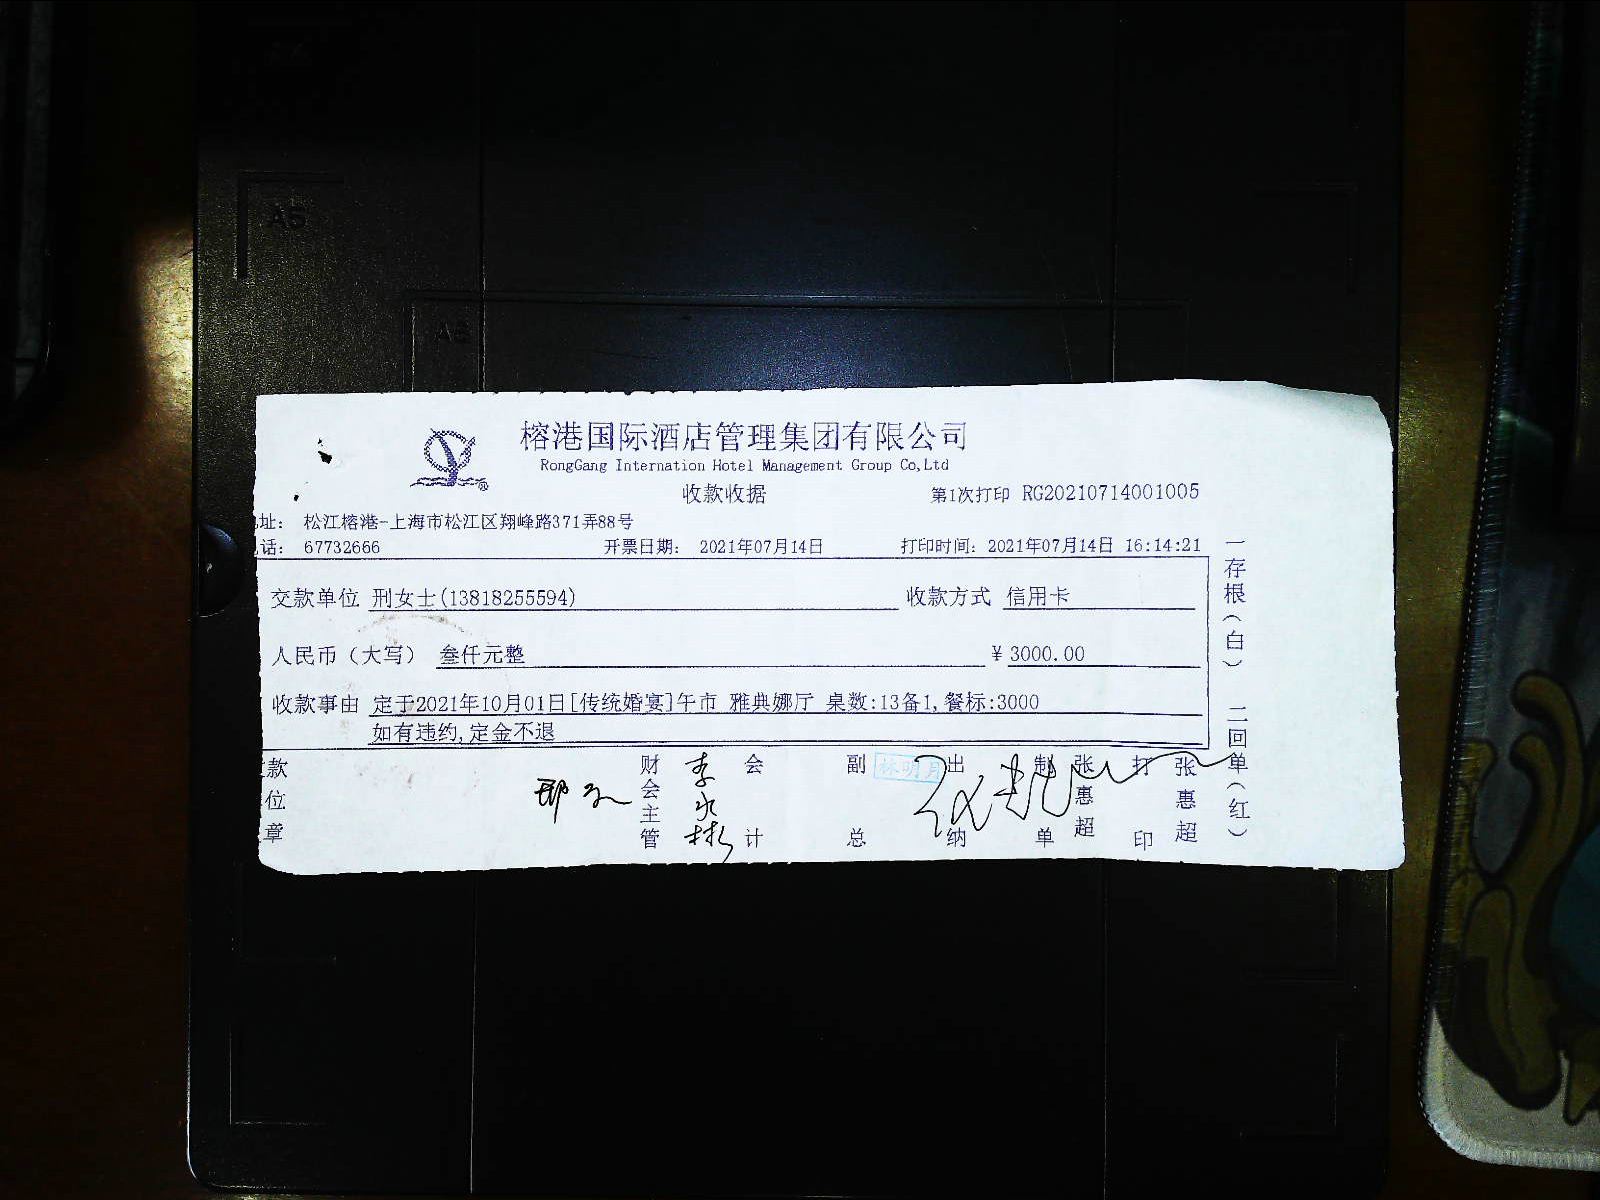 榕港国际酒店管理集团有限公司
RongGang Internation Hotel Management Group Co,Ltd
收款收据
第1次打印 RG20210714001005
址: 松江榕港-上海市松江区翔峰路371弄88号
话: 67732666 开票日期: 2021年07月14日 打印时间: 2021年07月14日 16:14:21
交款单位 刑女士(13818255594) 收款方式 信用卡
人民币（大写） 叁仟元整 ￥3000.00
收款事由 定于2021年10月01日[传统婚宴]午市 雅典娜厅 桌数:13备1,餐标:3000
如有违约,定金不退
款位章
财会主管 李永彬
会计
副总 林明月
出纳
制单 张惠超
打印 张惠超
一存根(白) 二回单(红)
A5
A6